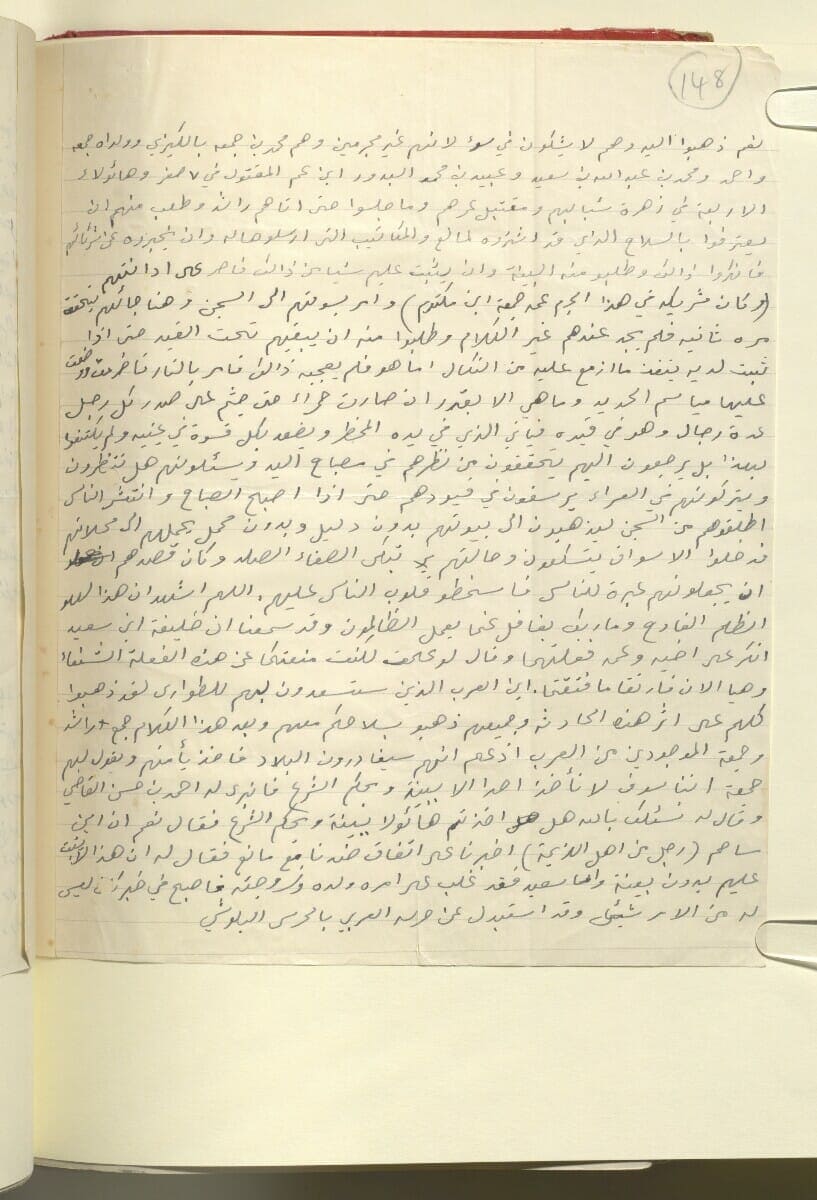 148
نعم ذهبوا اليه وهم لا يشكون في سوء لانهم غير مجرمين وهم محمد بن جمعه بالكيزي وولداه جمعه
واحمد ومحمد بن عبدالله بن سعيد وعبيد بن محمد البدور ابن عم المقتول في ٧ صفر وهائولاء
الاربعة في زهرة شبابهم ومقتبل عمرهم وما جلسوا حتى اتاهم راشد وطلب منهم ان
يعترفوا بالسلاح الذي قد اشتروه لمانع والمكاتيب التي ارسلوها له وان يخبروه عن شركائهم
فانكروا ذالك وطلبو منه البينة وان يثبت عليهم شيئا من ذالك فاصر على ادانتهم
(وكان شريكه في هذا الجرم عمه جمعة ابن مكتوم) وامر بسوقهم الى السجن وهنا جائهم يتحقق
مره ثانيه فلم يجد عندهم غير الكلام وطلبوا منه ان يبقيهم تحت القيد حتى اذا
ثبت لديه ينفذ ما ازمع عليه من النكال اما هو فلم يعجبه ذالك فامر بالنار فاضرمت ووضعت
عليها مياسم الحديد وما هي الا بقدر ان صارت حمراء حتى جثم على صدر كل رجل
عدة رجال وهو في قيده فيأتي الذي في يده المخطر ويضعه بكل قسوة في عينيه ولم يكتفوا
بهذا بل يرجعون اليهم يتحققون من نظرهم في مصباح اليد ويسئلونهم هل تنظرون
ويتركونهم في العراء يرسفون في قيودهم حتى اذا اصبح الصباح وانتشر الناس
اطلقوهم من السجن ليذهبون الى بيوتهم بدون دليل وبدون محمل يحملهم الى محلاتهم
فدخلوا الاسواق يتسكعون وحالتهم تبكى الصفاء الصلد وكان قصدهم
ان يجعلونهم عبرة للناس فاسخطو قلوب الناس عليهم . اللهم اشهد ان هذا لهو
الظلم الفادح وما ربك بغافل عما يعمل الظالمون وقد سمعنا ان خليفة ابن سعيد
انكر على اخيه وعمه فعلتهما وقال لو علمت لكنت منعتكما عن هذه الفعلة الشنعاء
وهيا الان فارتقا ما فتقتما . اين العرب الذين ستسعدون بهم للطوارى لقد ذهبوا
كلهم على اثر هذه الحادثه وجميعهم ذهبو بسلاحكم معهم وبعد هذا الكلام جمع راشد
وجمعة الموجودين من العرب اذ علم انهم سيغادرون البلاد فاخذ يأمنهم ويقول لهم
جمعة اننا سوف لا نأخذ احدا الا ببينة وبحكم الشرع فانبرى له احمد بن حسن القاضي
وقال له نسئلك بالله هل اخذتم هائولا ببينة وبحكم الشرع فقال نعم ان ابن
سالم (رجل من اهل الذيمة) اخبرنا على اتفاق ضدنا مع مانع فقال له ان هذا لا يثبت
عليهم بدون بينة واما سعيد فقد غلب على امره ولده وزوجته فاصبح في خبر كان ليس
له من الامر شيئ وقد استبدل عن حرسه العربي بالحرس البلوشي